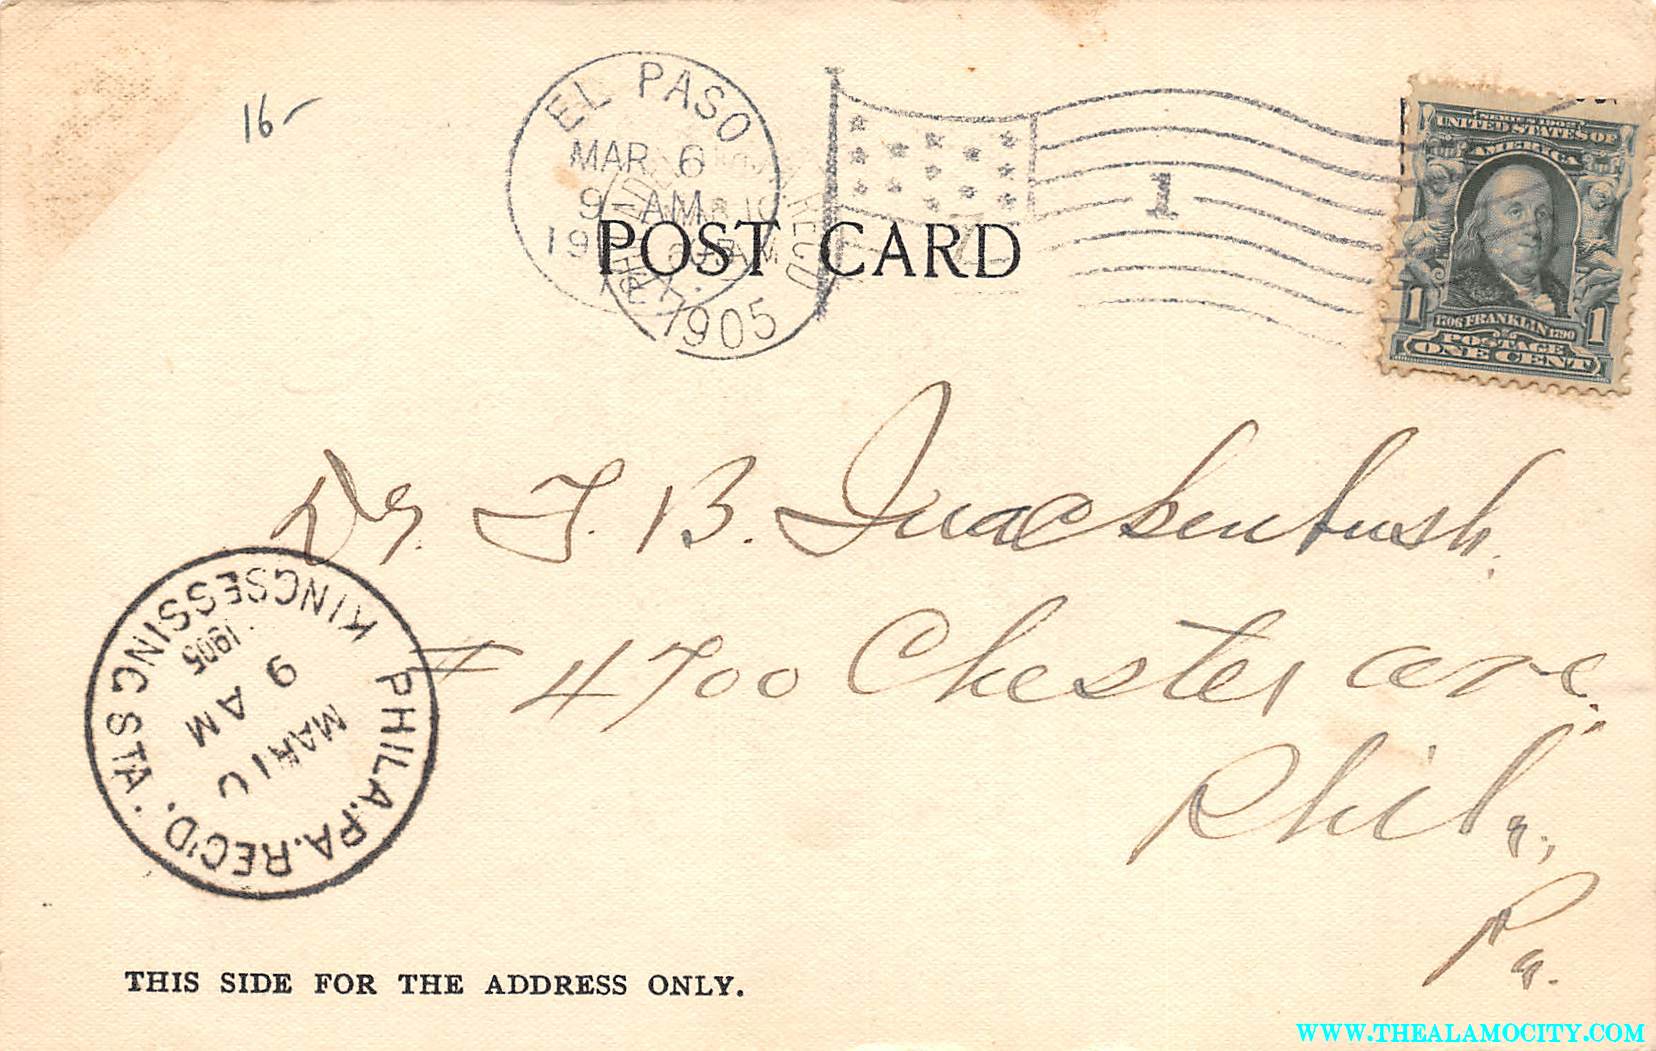 16-
EL PASO
MAR 6
9-AM
19
TEX.
1
POST CARD
REC'D
MAR 10
1905
SERIES 1902
UNITED STATES OF
AMERICA
1 1
1706 FRANKLIN 1790
POSTAGE
ONE CENT
Dr. F. B. Quackenbush.
# 4700 Chester ave.
Phila.,
Pa.
PHILA.PA.REC'D.
KINGSESSING STA.
MAR 10
9 AM
1905
THIS SIDE FOR THE ADDRESS ONLY.
WWW.THEALAMOCITY.COM